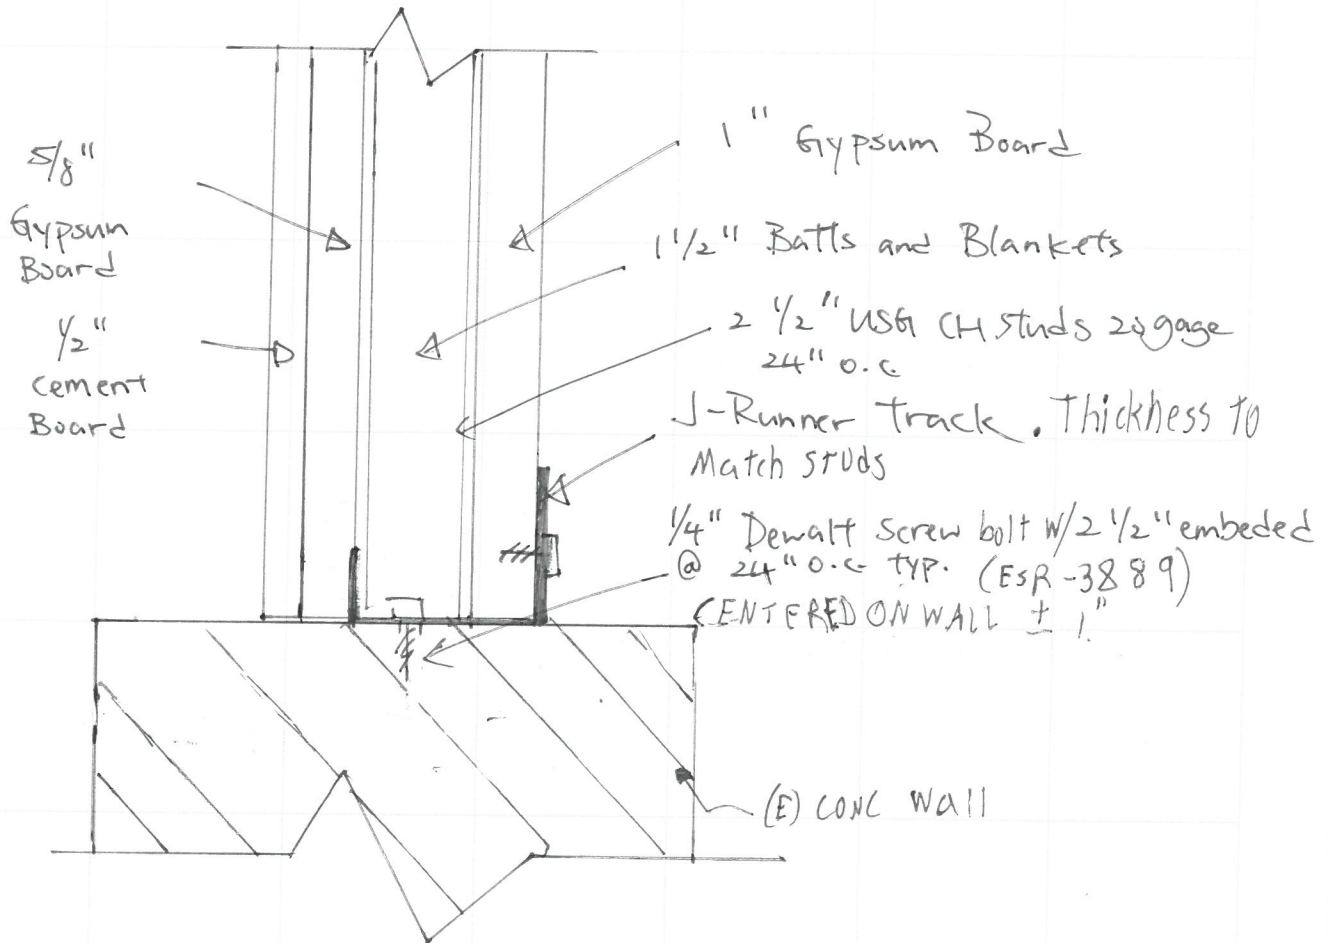 5/8"
Gypsum
Board
1/2"
cement
Board
1" Gypsum Board
1 1/2" Batts and Blankets
2 1/2" USG CH Studs 20 gage
24" O.C
J-Runner track. Thickness to
Match STUDS
1/4" Dewalt Screw bolt W/2 1/2" embeded
@ 24" O.C TYP. (ESR-3889)
CENTERED ON WALL ± 1"
(E) CONC Wall